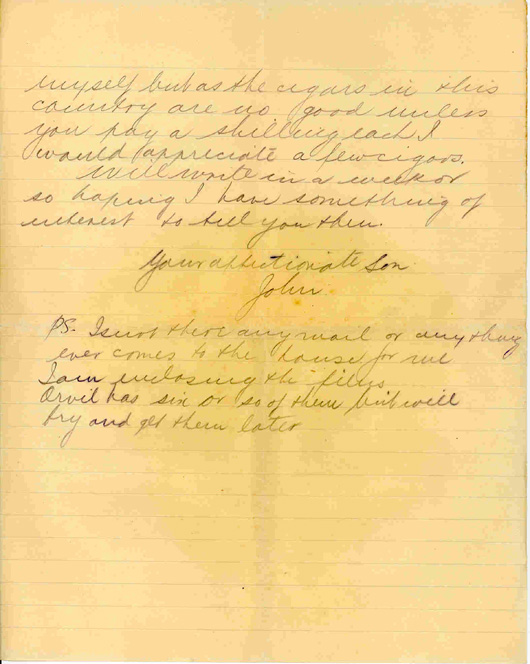 myself but as the cigars in this
country are no good unless
you pay a shilling each I
would appreciate a few cigars.
Will write in a week or
so hoping I have something of
interest to tell you then.
Your affectionate Son
John.
PS. Isnot there any mail or any thing
ever comes to the house for me
I am enclosing the films
Orvil has six or so of them but will
try and get them later